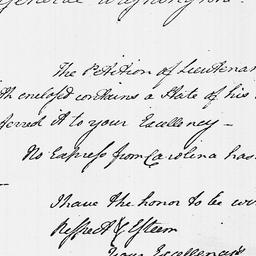 General Washington.
The Petition of Lieutenan
th enclosed contains a State of his
ferred it to your Excellency –
No Express from Carolina has
I have the honor to be wi
Respect & Esteem
Your Excellency's